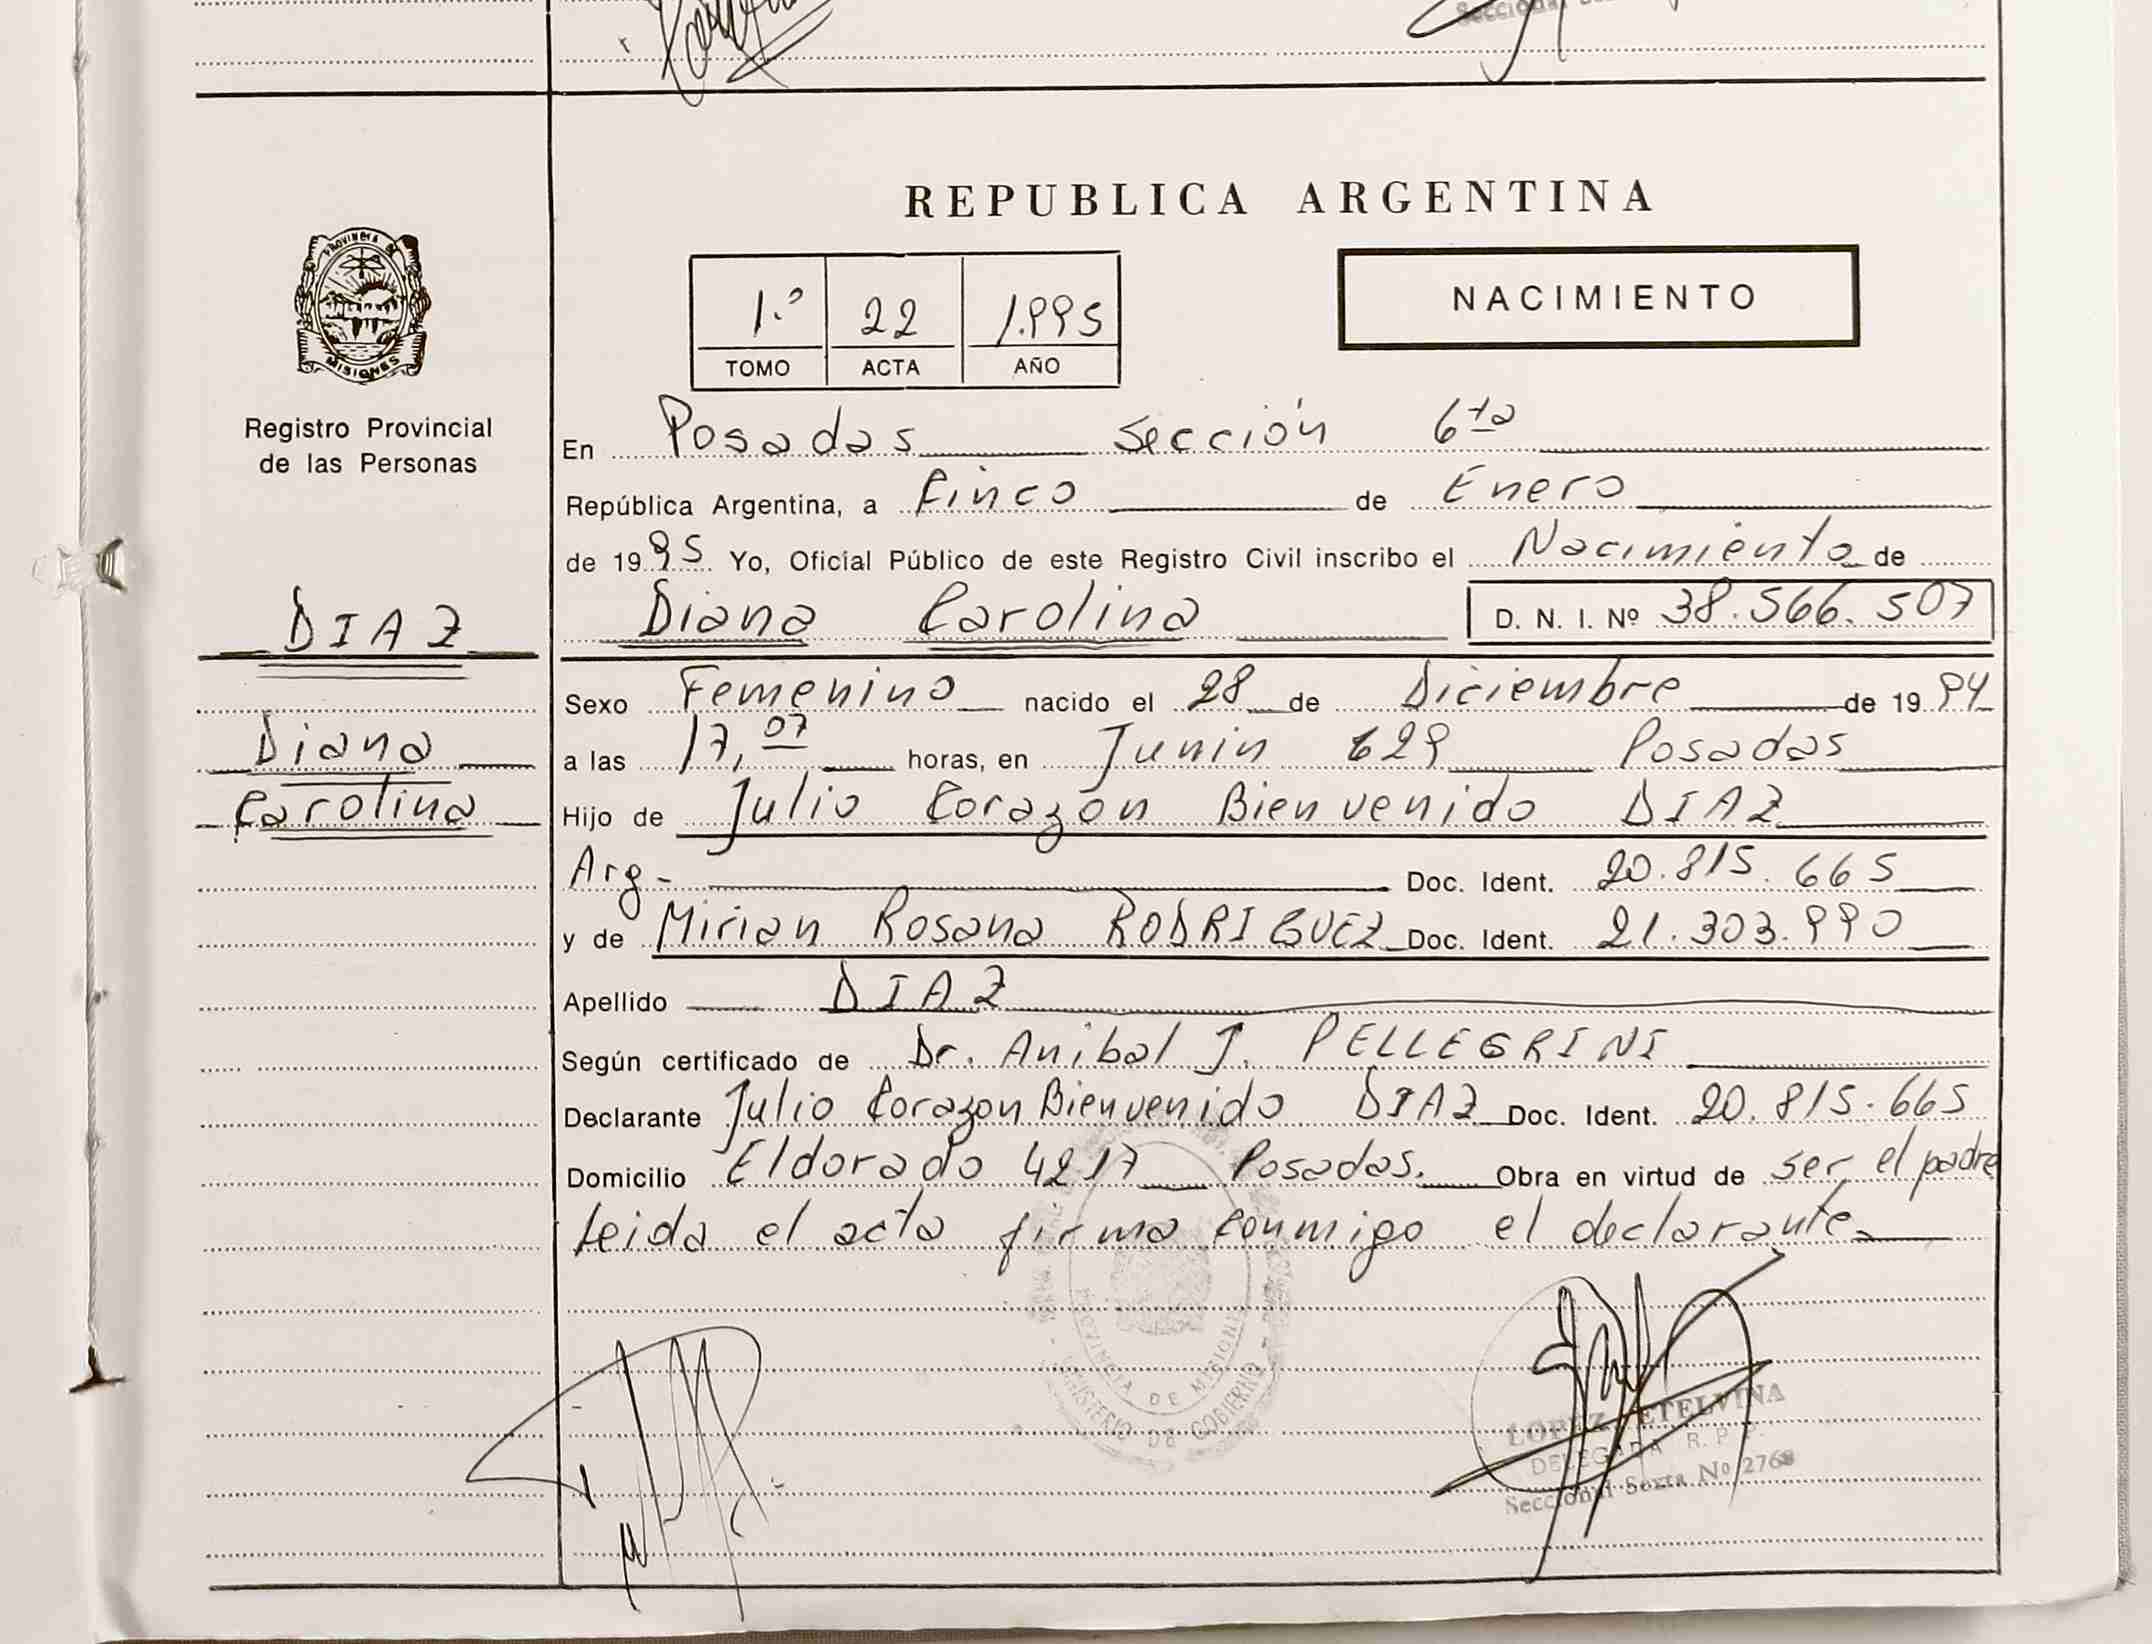 REPUBLICA ARGENTINA
PROVINCIA DE
MISIONES
Registro Provincial
de las Personas
1.º 22 1.995
TOMO ACTA AÑO
NACIMIENTO
En Posadas Sección 6ta
República Argentina, a Cinco de Enero
de 1995 Yo, Oficial Público de este Registro Civil inscribo el Nacimiento de
DIAZ
Diana Carolina D. N. I. Nº 38.566.507
Sexo Femenino nacido el 28 de Diciembre de 1994
Diana
a las 17,07 horas, en Junin 629 Posadas
Carolina
Hijo de Julio Corazón Bienvenido DIAZ
Arg- Doc. Ident. 20.815.665
y de Mirian Rosana RODRIGUEZ Doc. Ident. 21.303.990
Apellido DIAZ
Según certificado de Dr. Anibal J. PELLEGRINI
Declarante Julio Corazon Bienvenido DIAZ Doc. Ident. 20.815.665
Domicilio Eldorado 4217 Posadas. Obra en virtud de ser el padre
Leida el acta firma conmigo el declarante
PROVINCIA DE MISIONES
MINISTERIO DE GOBIERNO
LOPEZ ETELVINA
DELEGADA R. P. P.
Seccional Sexta Nº 2768